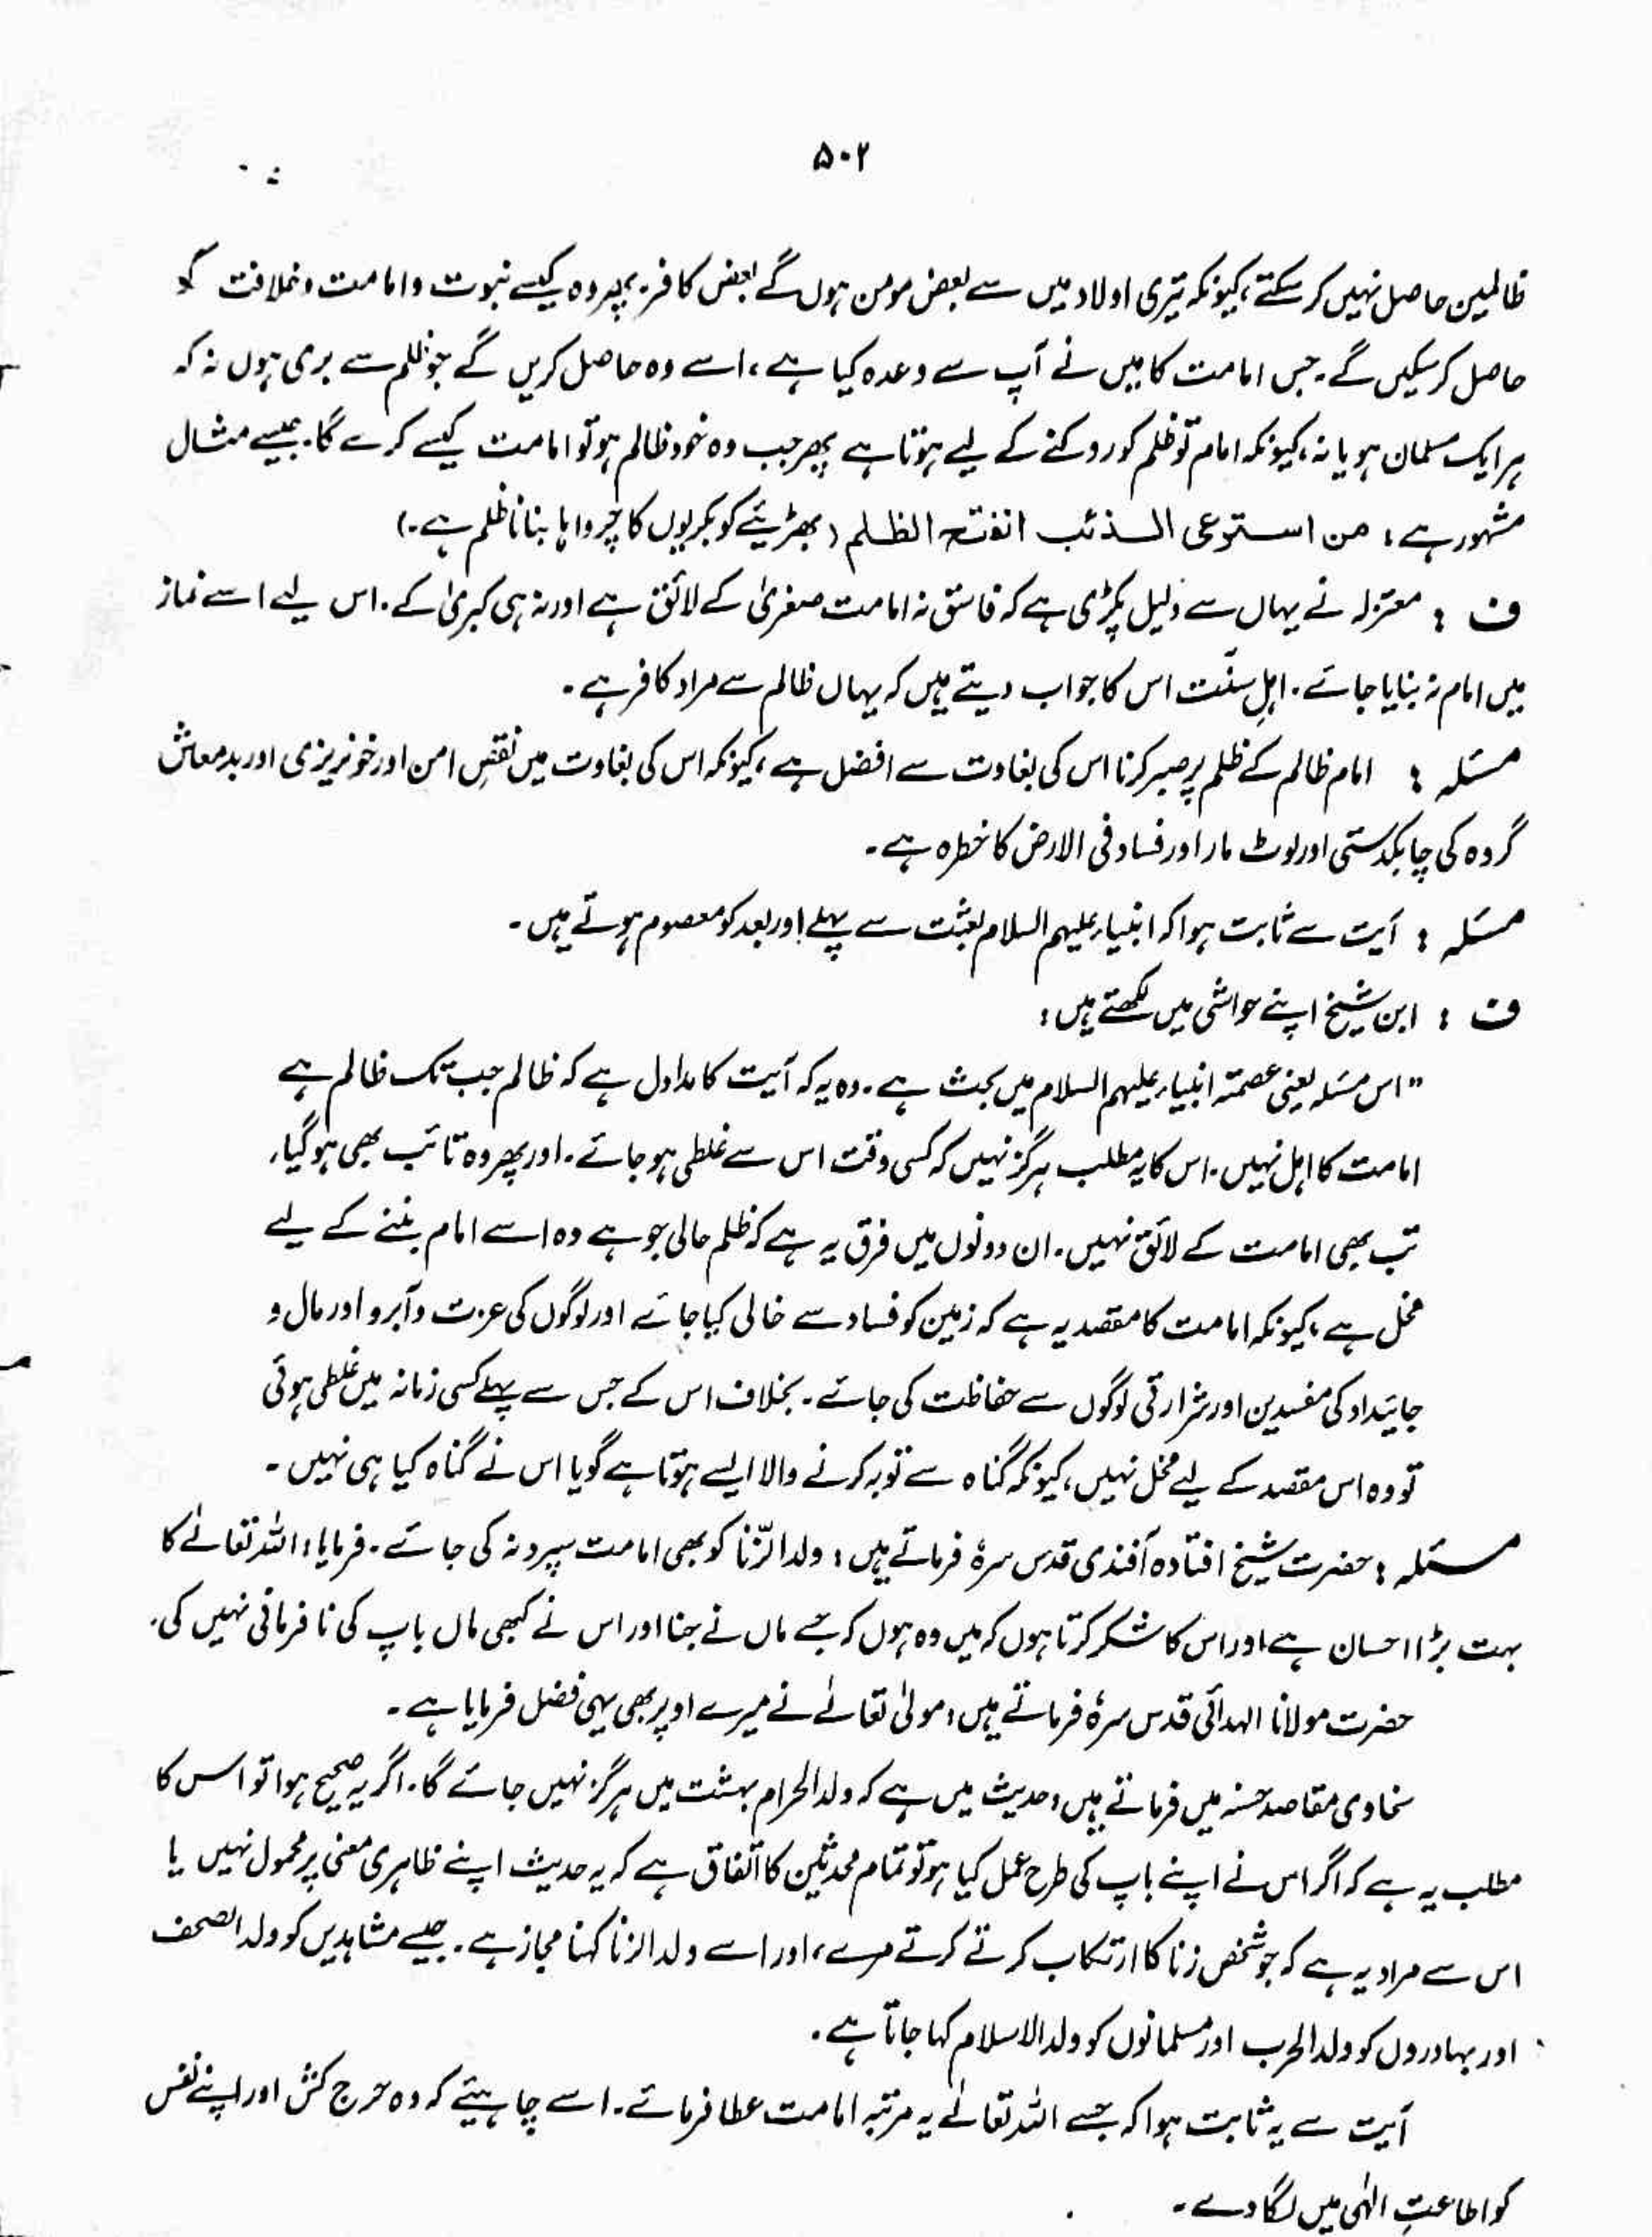 ۵۰۲
ظالمین حاصل نہیں کر سکتے، کیونکہ تیری اولاد میں سے بعض مومن ہوں گے بعض کافر۔ پھر وہ کیسے نبوت و امامت و خلافت کو
حاصل کر سکیں گے۔ جس امامت کا میں نے آپ سے وعدہ کیا ہے، اسے وہ حاصل کریں گے جو ظلم سے بری ہوں نہ کہ
ہر ایک مسلمان ہو یا نہ، کیونکہ امام تو ظلم کو روکنے کے لیے ہوتا ہے پھر جب وہ خود ظالم ہو تو امامت کیسے کرے گا۔ جیسے مثال
مشہور ہے : من استرعی الذئب الظلم (بھڑیئے کو بکریوں کا چرواہا بنانا ظلم ہے۔)
ف : معتزلہ نے یہاں سے دلیل پکڑی ہے کہ فاسق نہ امامت صغریٰ کے لائق ہے اور نہ ہی کبریٰ کے۔ اس لیے اسے نماز
میں امام نہ بنایا جائے۔ اہلِ سنّت اس کا جواب دیتے ہیں کہ یہاں ظالم سے مراد کافر ہے۔
مسئلہ : امام ظالم کے ظلم پر صبر کرنا اس کی بغاوت سے افضل ہے، کیونکہ اس کی بغاوت میں نقصِ امن اور خونریزی اور بدمعاش
گروہ کی چابکدستی اور لوٹ مار اور فساد فی الارض کا خطرہ ہے۔
مسئلہ : آیت سے ثابت ہوا کہ انبیاء علیہم السلام بعثت سے پہلے اور بعد کو معصوم ہوتے ہیں۔
ف : ابن شیخ اپنے حواشی میں لکھتے ہیں :
"اس مسئلہ یعنی عصمتہ انبیاء علیہم السلام میں بحث ہے۔ وہ یہ کہ آیت کا مدلول ہے کہ ظالم جب تک ظالم ہے
امامت کا اہل نہیں۔ اس کا یہ مطلب ہرگز نہیں کہ کسی وقت اس سے غلطی ہو جائے۔ اور پھر وہ تائب بھی ہو گیا،
تب بھی امامت کے لائق نہیں۔ ان دونوں میں فرق یہ ہے کہ ظلم حالی جو ہے وہ اسے امام بننے کے لیے
مخل ہے، کیونکہ امامت کا مقصد یہ ہے کہ زمین کو فساد سے خالی کیا جائے اور لوگوں کی عزت و آبرو اور مال و
جائیداد کی مفسدین اور شرارتی لوگوں سے حفاظت کی جائے۔ بخلاف اس کے جس سے پہلے کسی زمانہ میں غلطی ہوئی
تو وہ اس مقصد کے لیے مخل نہیں، کیونکہ گناہ سے توبہ کرنے والا ایسے ہوتا ہے گویا اس نے گناہ کیا ہی نہیں۔
مسئلہ : حضرت شیخ افتادہ آفندی قدس سرہٗ فرماتے ہیں : ولد الزّنا کو بھی امامت سپرد نہ کی جائے۔ فرمایا : اللہ تعالےٰ کا
بہت بڑا احسان ہے اور اس کا شکر کرتا ہوں کہ میں وہ ہوں کہ جسے ماں نے جنا اور اس نے کبھی ماں باپ کی نافرمانی نہیں کی۔
حضرت مولانا الہدائی قدس سرہٗ فرماتے ہیں : مولیٰ تعالےٰ نے میرے اوپر بھی یہی فضل فرمایا ہے۔
سخاوی مقاصد حسنہ میں فرماتے ہیں : حدیث میں ہے کہ ولد الحرام بہشت میں ہرگز نہیں جائے گا۔ اگر یہ صحیح ہوا تو اس کا
مطلب یہ ہے کہ اگر اس نے اپنے باپ کی طرح عمل کیا ہو تو تمام محدثین کا اتفاق ہے کہ یہ حدیث اپنے ظاہری معنی پر محمول نہیں یا
اس سے مراد یہ ہے کہ جو شخص زنا کا ارتکاب کرتے کرتے مرے، اور اسے ولد الزنا کہنا مجاز ہے۔ جیسے مشاہدین کو ولد الصحف
اور بہادروں کو ولد الحرب اور مسلمانوں کو ولد الاسلام کہا جاتا ہے۔
آیت سے یہ ثابت ہوا کہ جسے اللہ تعالےٰ یہ مرتبہ امامت عطا فرمائے۔ اسے چاہیئے کہ وہ حرج کش اور اپنے نفس
کو اطاعتِ الٰہی میں لگا دے۔